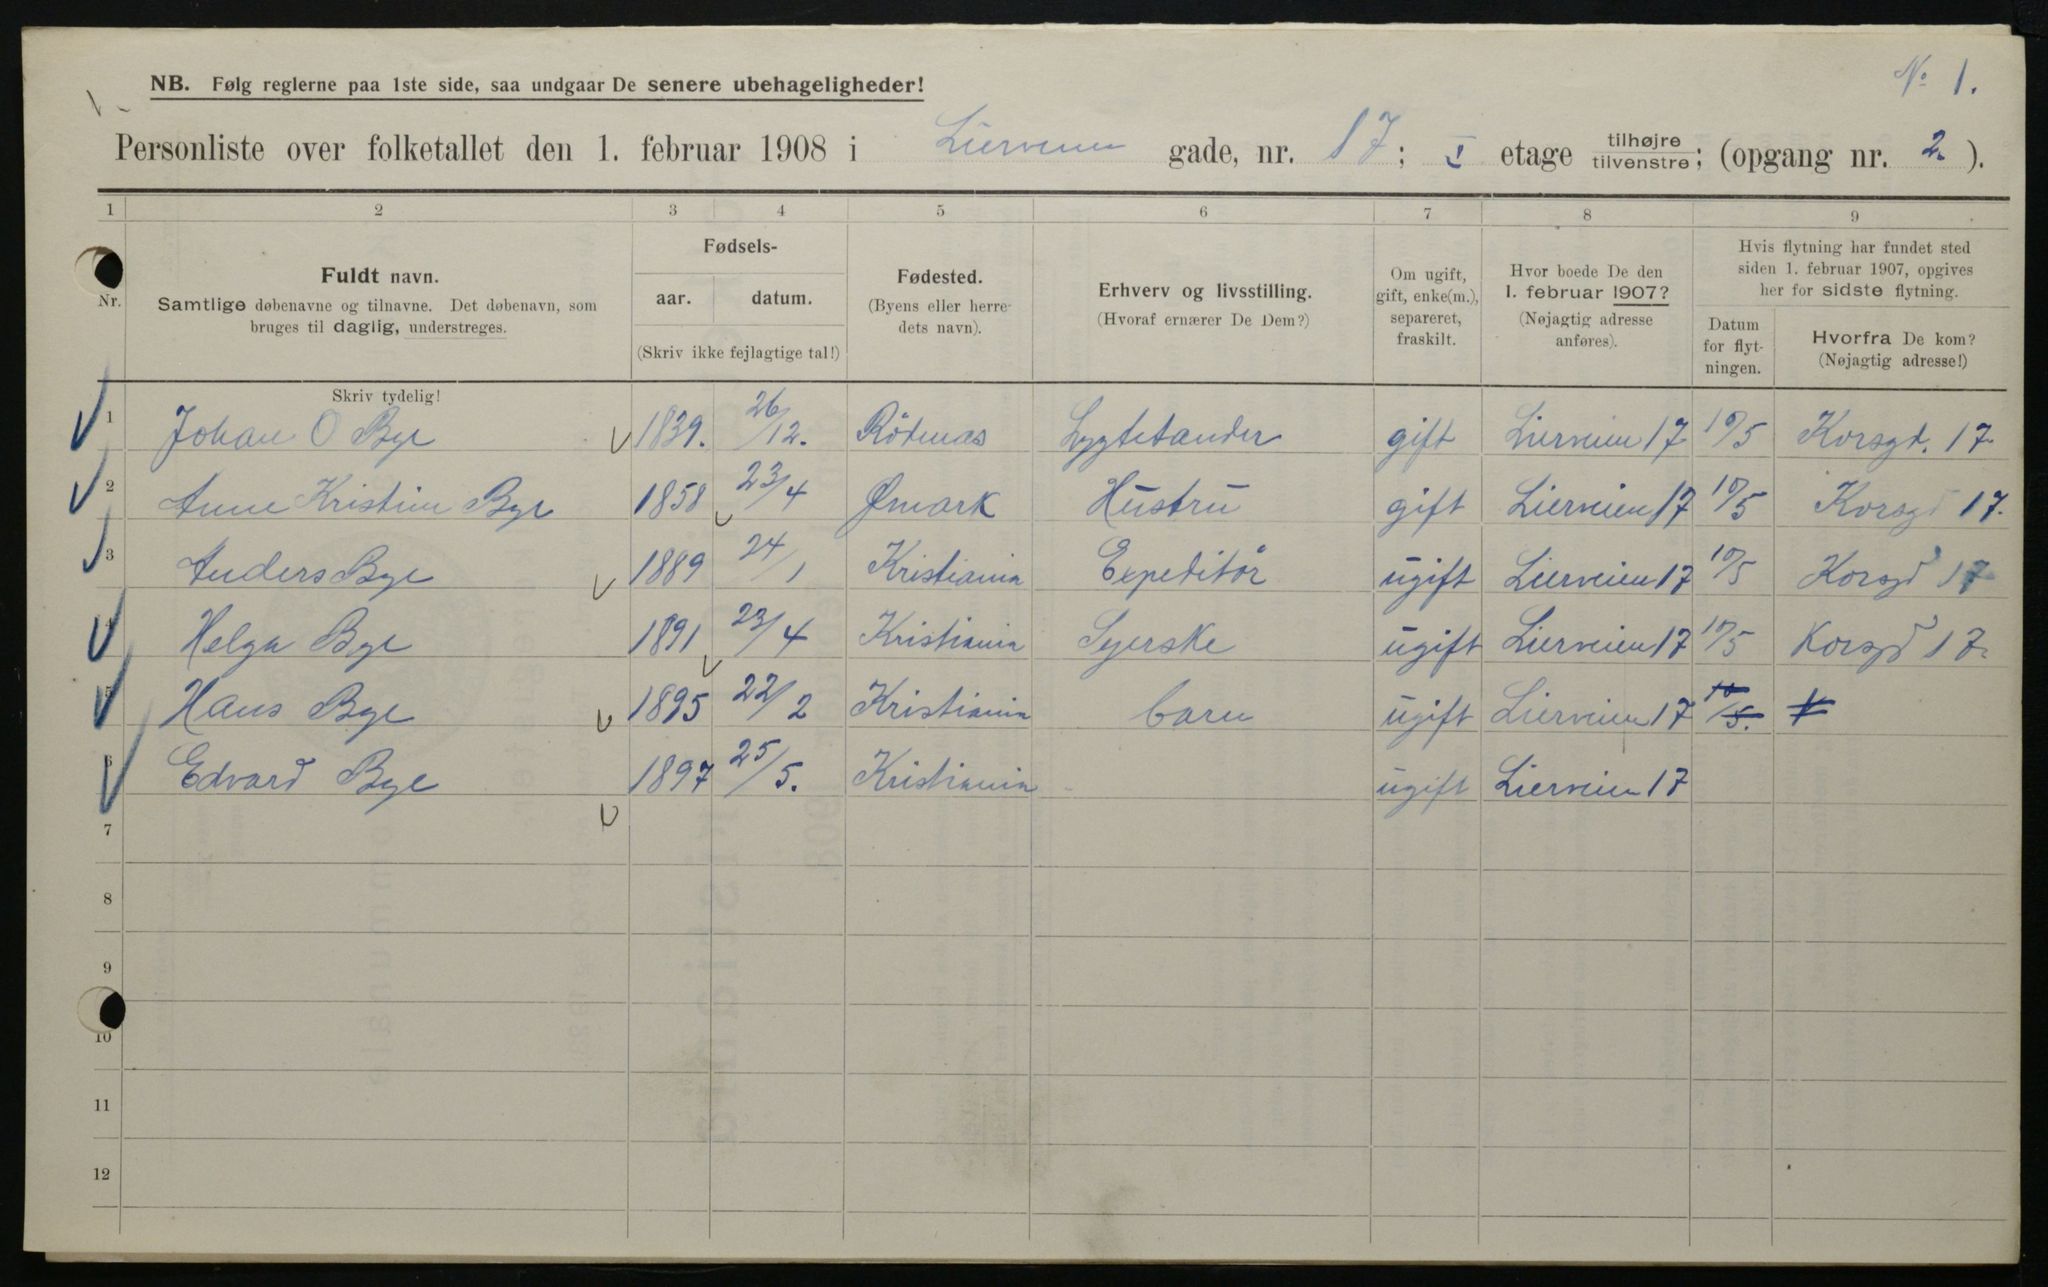 No 1.
NB. Følg reglerne paa 1ste side, saa undgaar De senere ubehageligheder!
Personliste over folketallet den 1. februar 1908 i Lierveien gade, nr. 17; I etage tilhøjre tilvenstre; (opgang nr. 2.).
1 2 3 4 5 6 7 8 9
Nr.
Fuldt navn.
Samtlige døbenavne og tilnavne. Det døbenavn, som
bruges til daglig, understreges.
Skriv tydelig!
Fødsels-
aar. datum.
(Skriv ikke fejlagtige tal!)
Fødested.
(Byens eller herre-
dets navn).
Erhverv og livsstilling.
(Hvoraf ernærer De Dem?)
Om ugift,
gift, enke(m.),
separeret,
fraskilt.
Hvor boede De den
1. februar 1907?
(Nøjagtig adresse
anføres).
Hvis flytning har fundet sted
siden 1. februar 1907, opgives
her for sidste flytning.
Datum
for flyt-
ningen.
Hvorfra De kom?
(Nøjagtig adresse!)
1 Johan O Bye 1839. 26/12. Rödenæs Lygtetænder gift Lierveien 17 10/5 Korsgd. 17.
2 Anne Kristine Bye 1858 23/4 Ømark Hustru gift Lierveien 17 10/5 Korsgd 17.
3 Anders Bye 1889 24/1 Kristiania Expeditör ugift Lierveien 17 10/5 Korsgd 17
4 Helga Bye 1891 23/4 Kristiania Syerske ugift Lierveien 17 10/5 Korsgd 17.
5 Hans Bye 1895 22/2 Kristiania barn ugift Lierveien 17 10/5.
6 Edvard Bye 1897 25/5. Kristiania ugift Lierveien 17
7
8
9
10
11
12